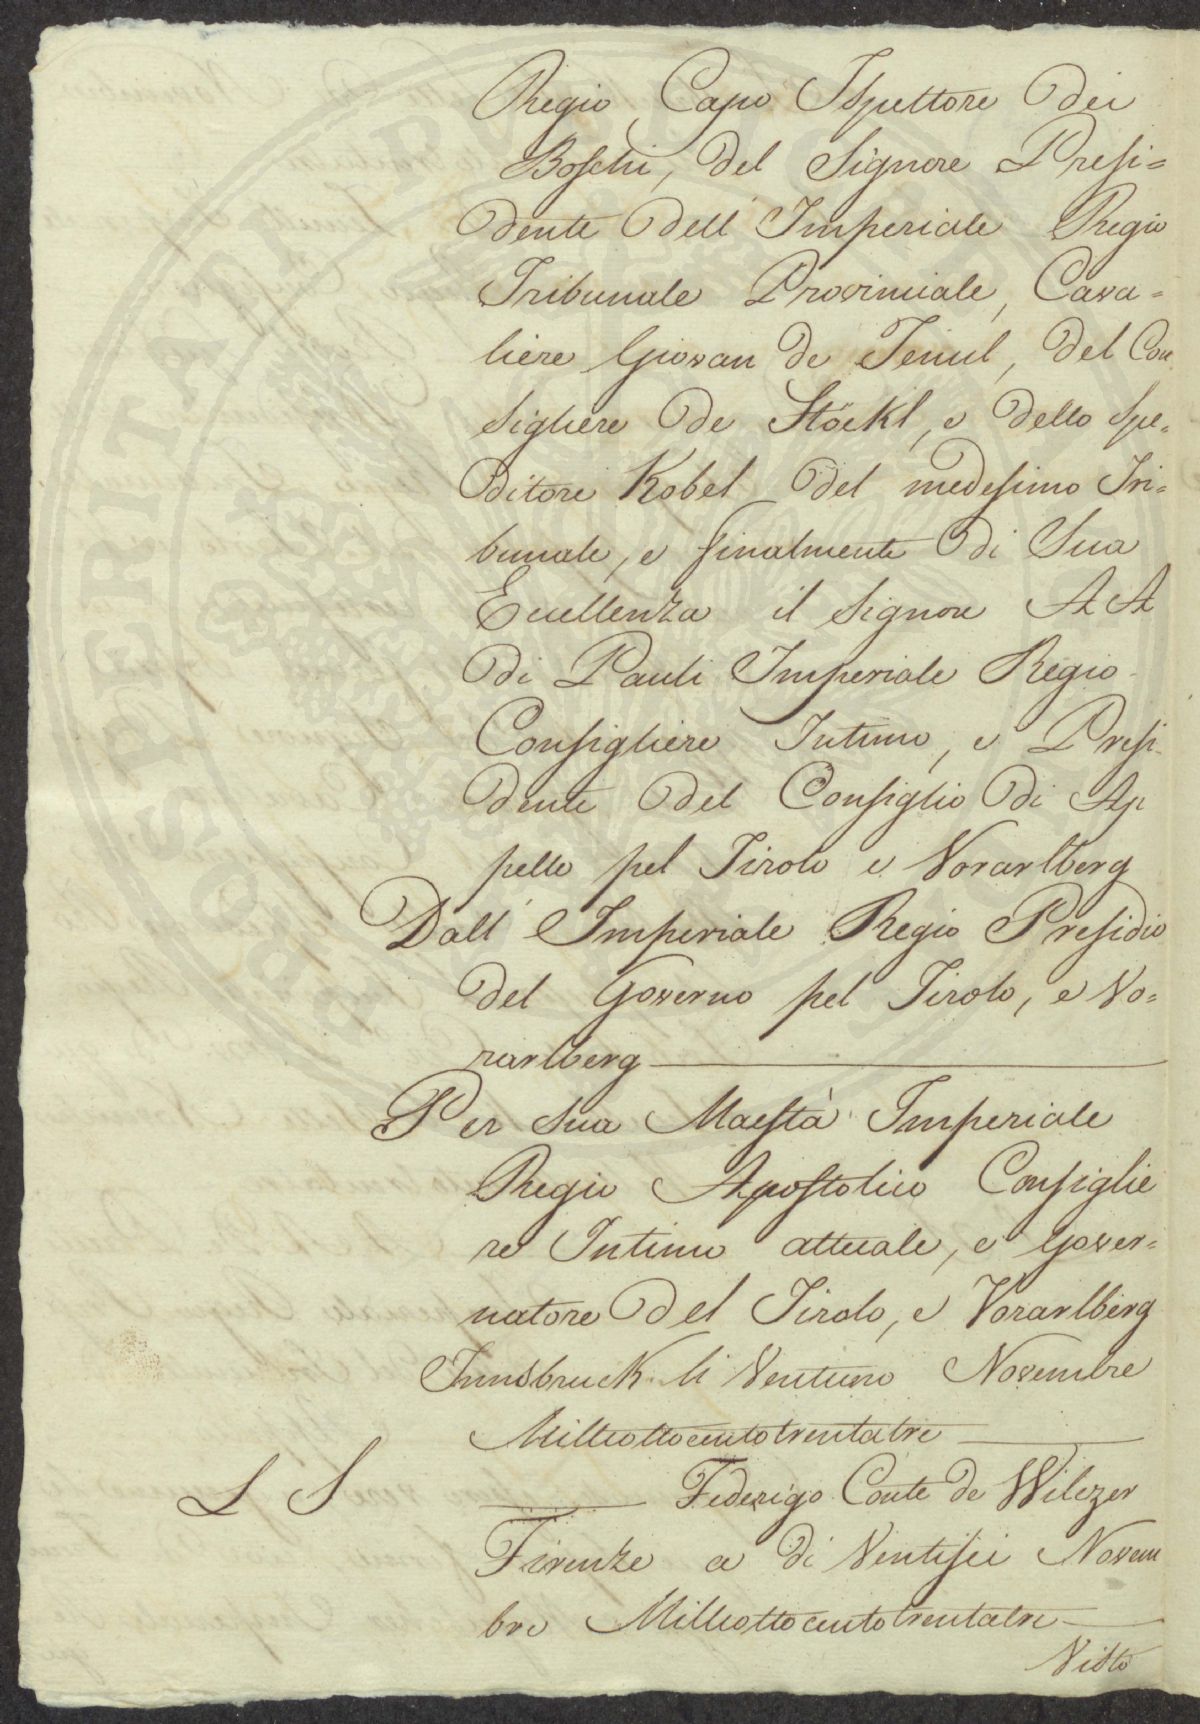 Regio, Capo Ispettore dei
Boschi, del Signore Presi=
dente dell'Imperiale Regio
Tribunale Provinciale, Cava=
liere Giovan de Jenul, del Con
sigliere de Stöckl, e dello Spe=
ditore Kobel del medesimo Tri=
bunale, e finalmente di Sua
Eccellenza il Signore A A
di Pauli Imperiale Regio
Consigliere Intimo, e Presi
dente del Consiglio di Ap
pello pel Tirolo e Vorarlberg
Dall'Imperiale Regio Presidio
del Governo pel Tirolo, e Vo=
rarlberg
Per Sua Maestà Imperiale
Regio Apostolico Consiglie
re Intimo attuale, e Gover=
natore del Tirolo, e Vorarlberg
Innsbruck li Ventuno Novembre
Milleottocentotrentatre
L S Federigo Conte de Wilczer
Firenze a di Ventisei Novem
bre Milleottocentotrentatre
Visto